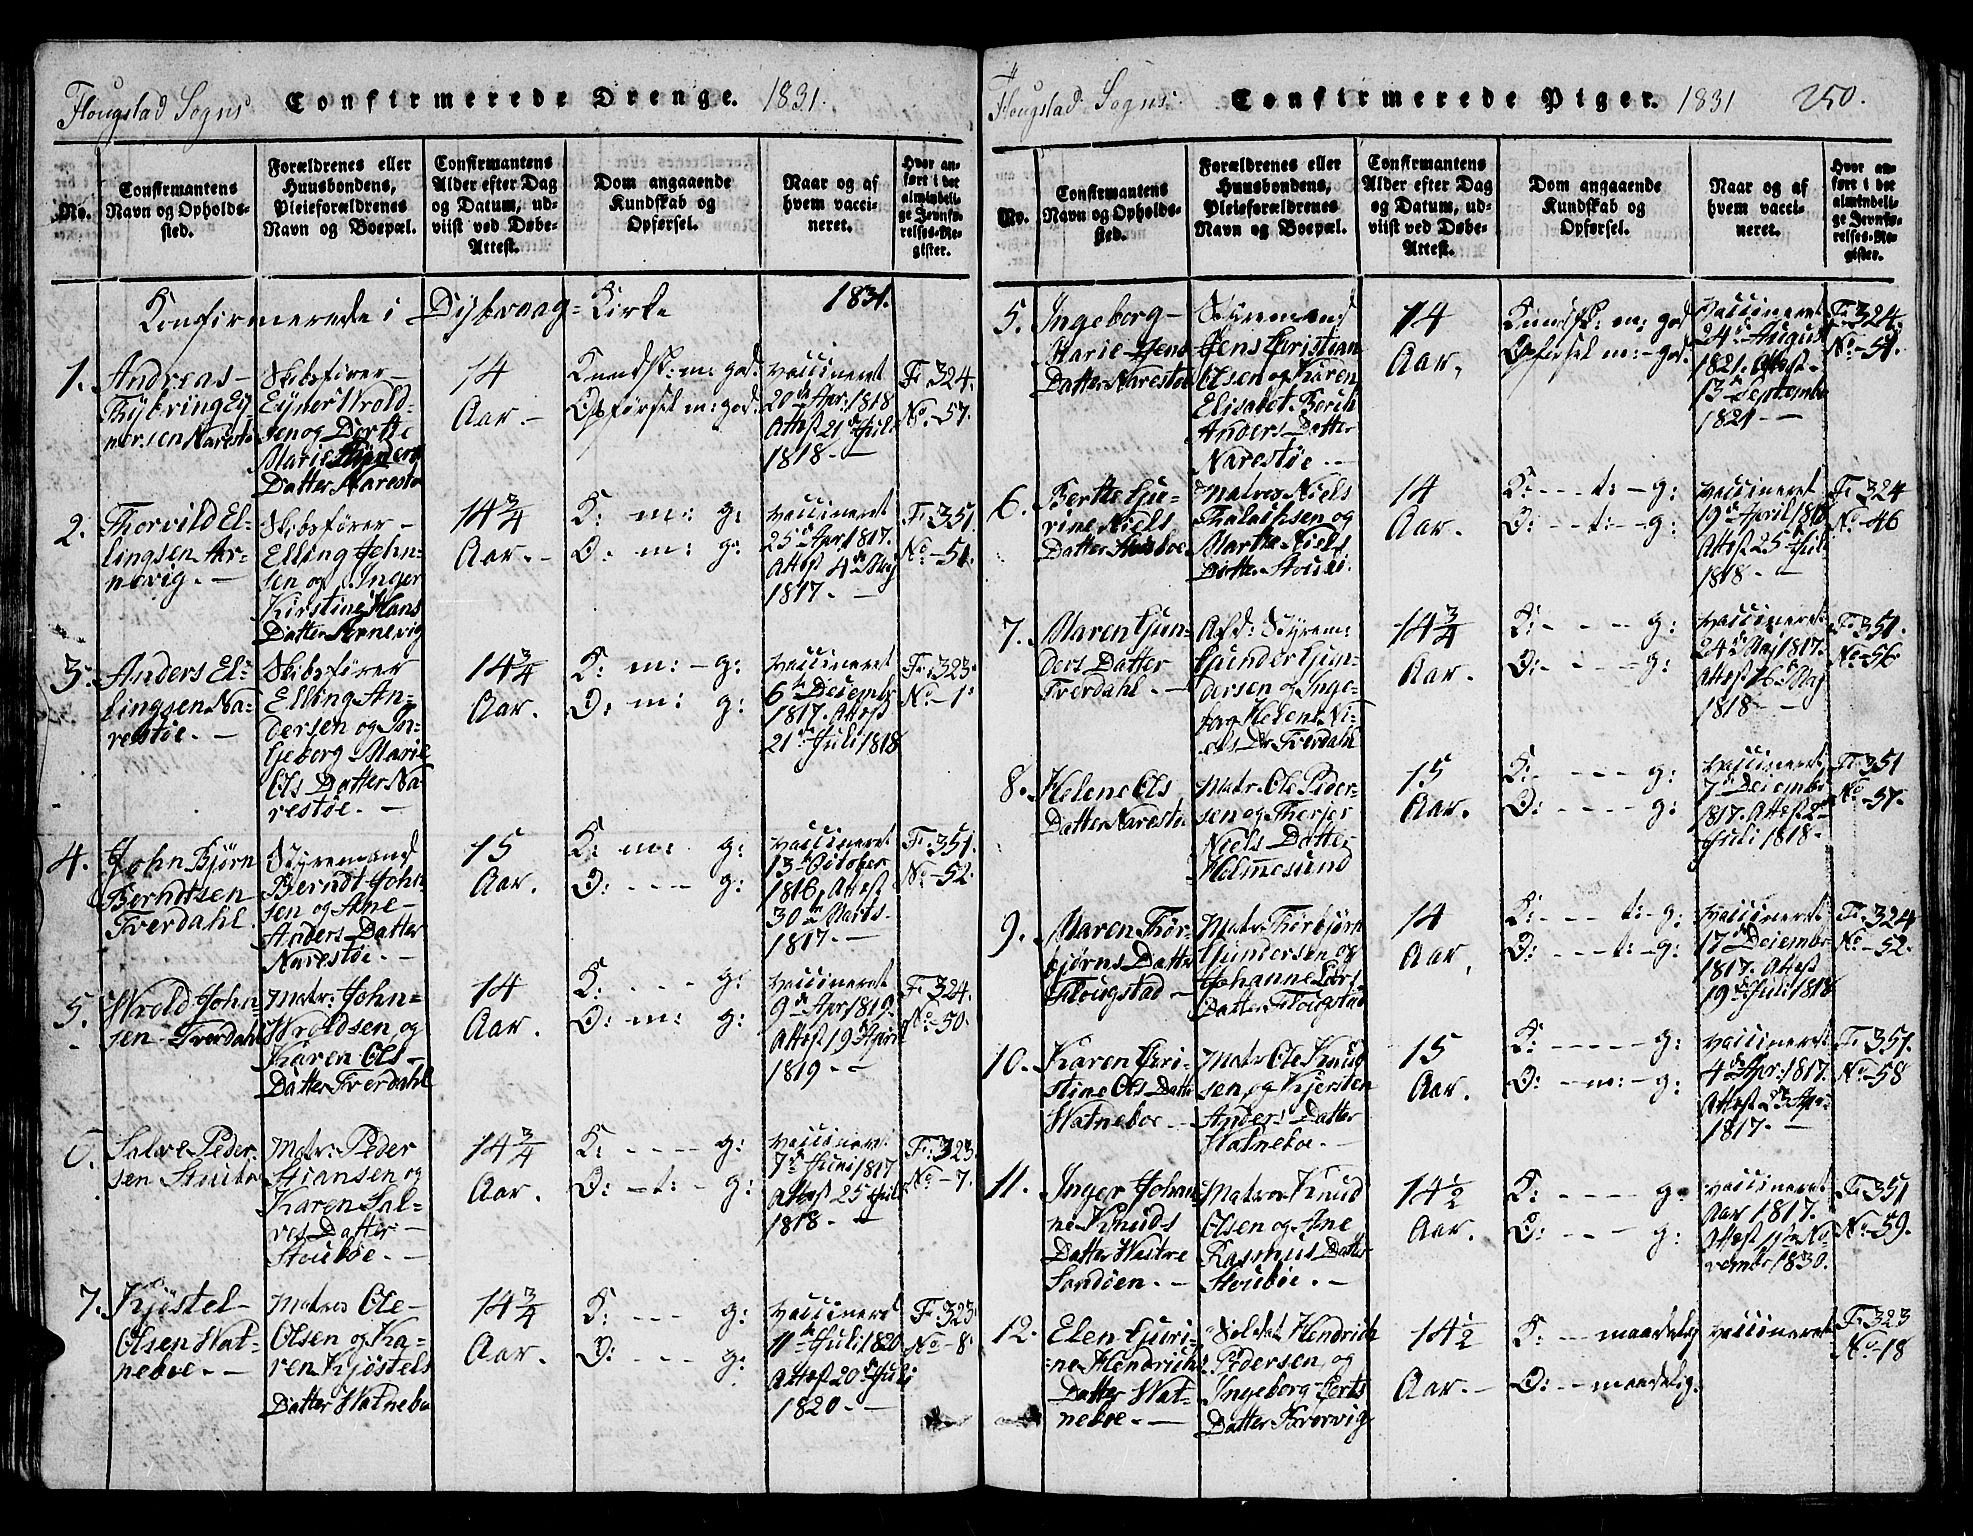 Flougstad Sogns Confirmerede Drenge. 1831.
No.
Confirmantens
Navn og Opholds-
sted.
Forældrenes eller
Huusbondens,
Pleieforældrenes
Navn og Boepæl.
Confirmantens
Alder efter Dag
og Datum, ud-
viist ved Døbe-
Attest.
Dom angaaende
Kundskab og
Opførsel.
Naar og af
hvem vacci-
neret.
Hvor an-
ført i det
almindeli-
ge Jevnfø-
relses-Re-
gister.
Konfirmerede i Dybvaag-Kirke 1831.
1. Andreas-
nersen Naresto
Skibsfører-
Eyner Wrold-
sen og Dorthe
Marie
Datter Naresto
14
Aar.-
Kundsk: m: god.
Opførsel m: god.
vaccineret
20de Apr: 1818
Attest 21de Juli
1818.-
F: 324.
No-57.
2. Thorvild El-
lingsen Ar-
nevig.-
Skibsfører-
Elling John-
sen og Inger
Kirstine Hans
Datter Arnevig
14 3/4
Aar.-
K: m: g:
O: m: g:
vaccineret
25de Apr: 1817.
Attest 4de Maj
1817.-
F: 351.
No-51.
3. Anders El-
lingsen Na-
restøe.-
Skibsfører
Elling An-
dersen og In-
geborg Marie
Ols Datter Na-
restøe.-
14 3/4
Aar.
K: m:- g:
O: m: g:
vaccineret
6te Decembr
1817. Attest
21de Juli 1818
F: 323.
No-1.
4. John Bjørn
Berndtsen
Tverdahl.
Styremand
Berndt John-
sen og Ane-
Anders-Datter
Narestøe.-
15
Aar.
K: m: g:
O: --- g:
vaccineret
13de October
1816, Attest
30te Marts-
1817.-
F: 351.
No-52.
5. Wrold John-
sen-Tverdahl
Matr: John-
Wroldsen og
Karen Ols-
Datter Tverdahl
14
Aar.
K: --- g:
O: m: g:
vaccineret
9de Apr: 1819.
Attest 19de April
1819.-
F: 324.
No-50.
6. Salve Peder-
sen Stoubø
Matr: Peder
Stiansen og
Karen Sal-
ves Datter-
Stoubøe.-
14 3/4
Aar.
K: ---- g:
O: -t:- g:
vaccineret
7de Juni 1817
Attest 25de Juli
1818.-
F: 323.
No-7.
7. Kjøstel-
Olsen Wat-
neboe.-
Matros Ole-
Olsen og Ka-
ren Kjøstels
Datter Watnebo
14 3/4
Aar.
K: --- g:
O: --- g:
vaccineret
11te Juli 1820
Attest 20de Juli
1820.-
F: 323.
No-8.
Flougstad Sogns. Confirmerede Piger. 1831 250.
No.
Confirmantens
Navn og Opholds-
sted.
Forældrenes eller
Huusbondens,
Pleieforældrenes
Navn og Boepæl.
Confirmantens
Alder efter Dag
og Datum, ud-
viist ved Døbe-
Attest.
Dom angaaende
Kundskab og
Opførsel.
Naar og af
hvem vacci-
neret.
Hvor an-
ført i det
almindeli-
ge Jevnfø-
relses-Re-
gister.
5. Ingeborg-
Marie-Jens
Datter Narestøe
Styremand
Jens Christian
Olsen og Karen
Elisabet-
Anders-Datter
Narestøe.-
14
Aar.
Kundsk: m: god
Opførsel m:-god.
vaccineret
24de August
1821. Attest-
13de Septembr
1821.-
F: 324.
No-51.
6. Berthe Gu-
rine Niels
Datter
Matros Niels
og
Marthe Niels
Datter
14
Aar.
K: ---t:-g:
O: --t:-g:
vaccineret
19de April 1818
Attest 25de Juli
1818.-
F: 324
No-46
7. Maren Gun-
ders Datter
Tverdahl.-
Afd: Styrem:
Gunder Gun-
dersen og Inge-
borg Helene Ni-
els Dr Tverdahl
14 3/4
Aar.
K:- - - - g:
O:- - - - g:
vaccineret
24de Maj 1817.
Attest 16de Maj
1818.-
F: 351.
No-56
8. Helene Ols
Datter Naresto
Matr. Ole Peder-
sen og Therjer
Niels Datter
Holmesund
15
Aar.
K: --- g:
O: ---- g:
vaccineret
7de Decembr
1817. Attest 2de
Juli 1818.-
F: 351
No-57.
9. Maren Thor-
bjørns Datter
Flougstad-
Matr. Thorbjørn
Gundersen og
Johanne Lars
Datter Flougstad
14
Aar.
K: ---t:-g:
O: ---t:-g:
vaccineret
17de Decembr
1817. Attest
19de Juli 1818
F: 324
No-52.
10. Karen Chri-
stine Ols Datter
Watneboe-
Matr Ole Knud
sen, og Kjersten
Anders Datter
Watneboe.-
15
Aar.
K: ----- g:
O: --m:-g:
vaccineret
4de Apr: 1817.
Attest 23de Apr:
1817.-
F: 351.
No-58
11. Inger Johan
ne-Knuds
Datter Westre
Sandøen.-
Matros Knud
Olsen og Ane
Rasmus Datter
Stoubøe.-
14 1/2
Aar.
K: ---- g:
O: --- g:
vaccineret
Aar 1817.
Attest 11te No-
vembr 1830.
F: 351
No-59.
12. Elen Guri-
ne-Hendrichs
Datter Wat-
neboe.-
Soldat Hendrich
Pedersen, og
Ingeborg-Gerts
Datter Kvervig
14 1/2
Aar.-
K: --maadelig
O: --maadelig.
vaccineret
F: 323
No-18